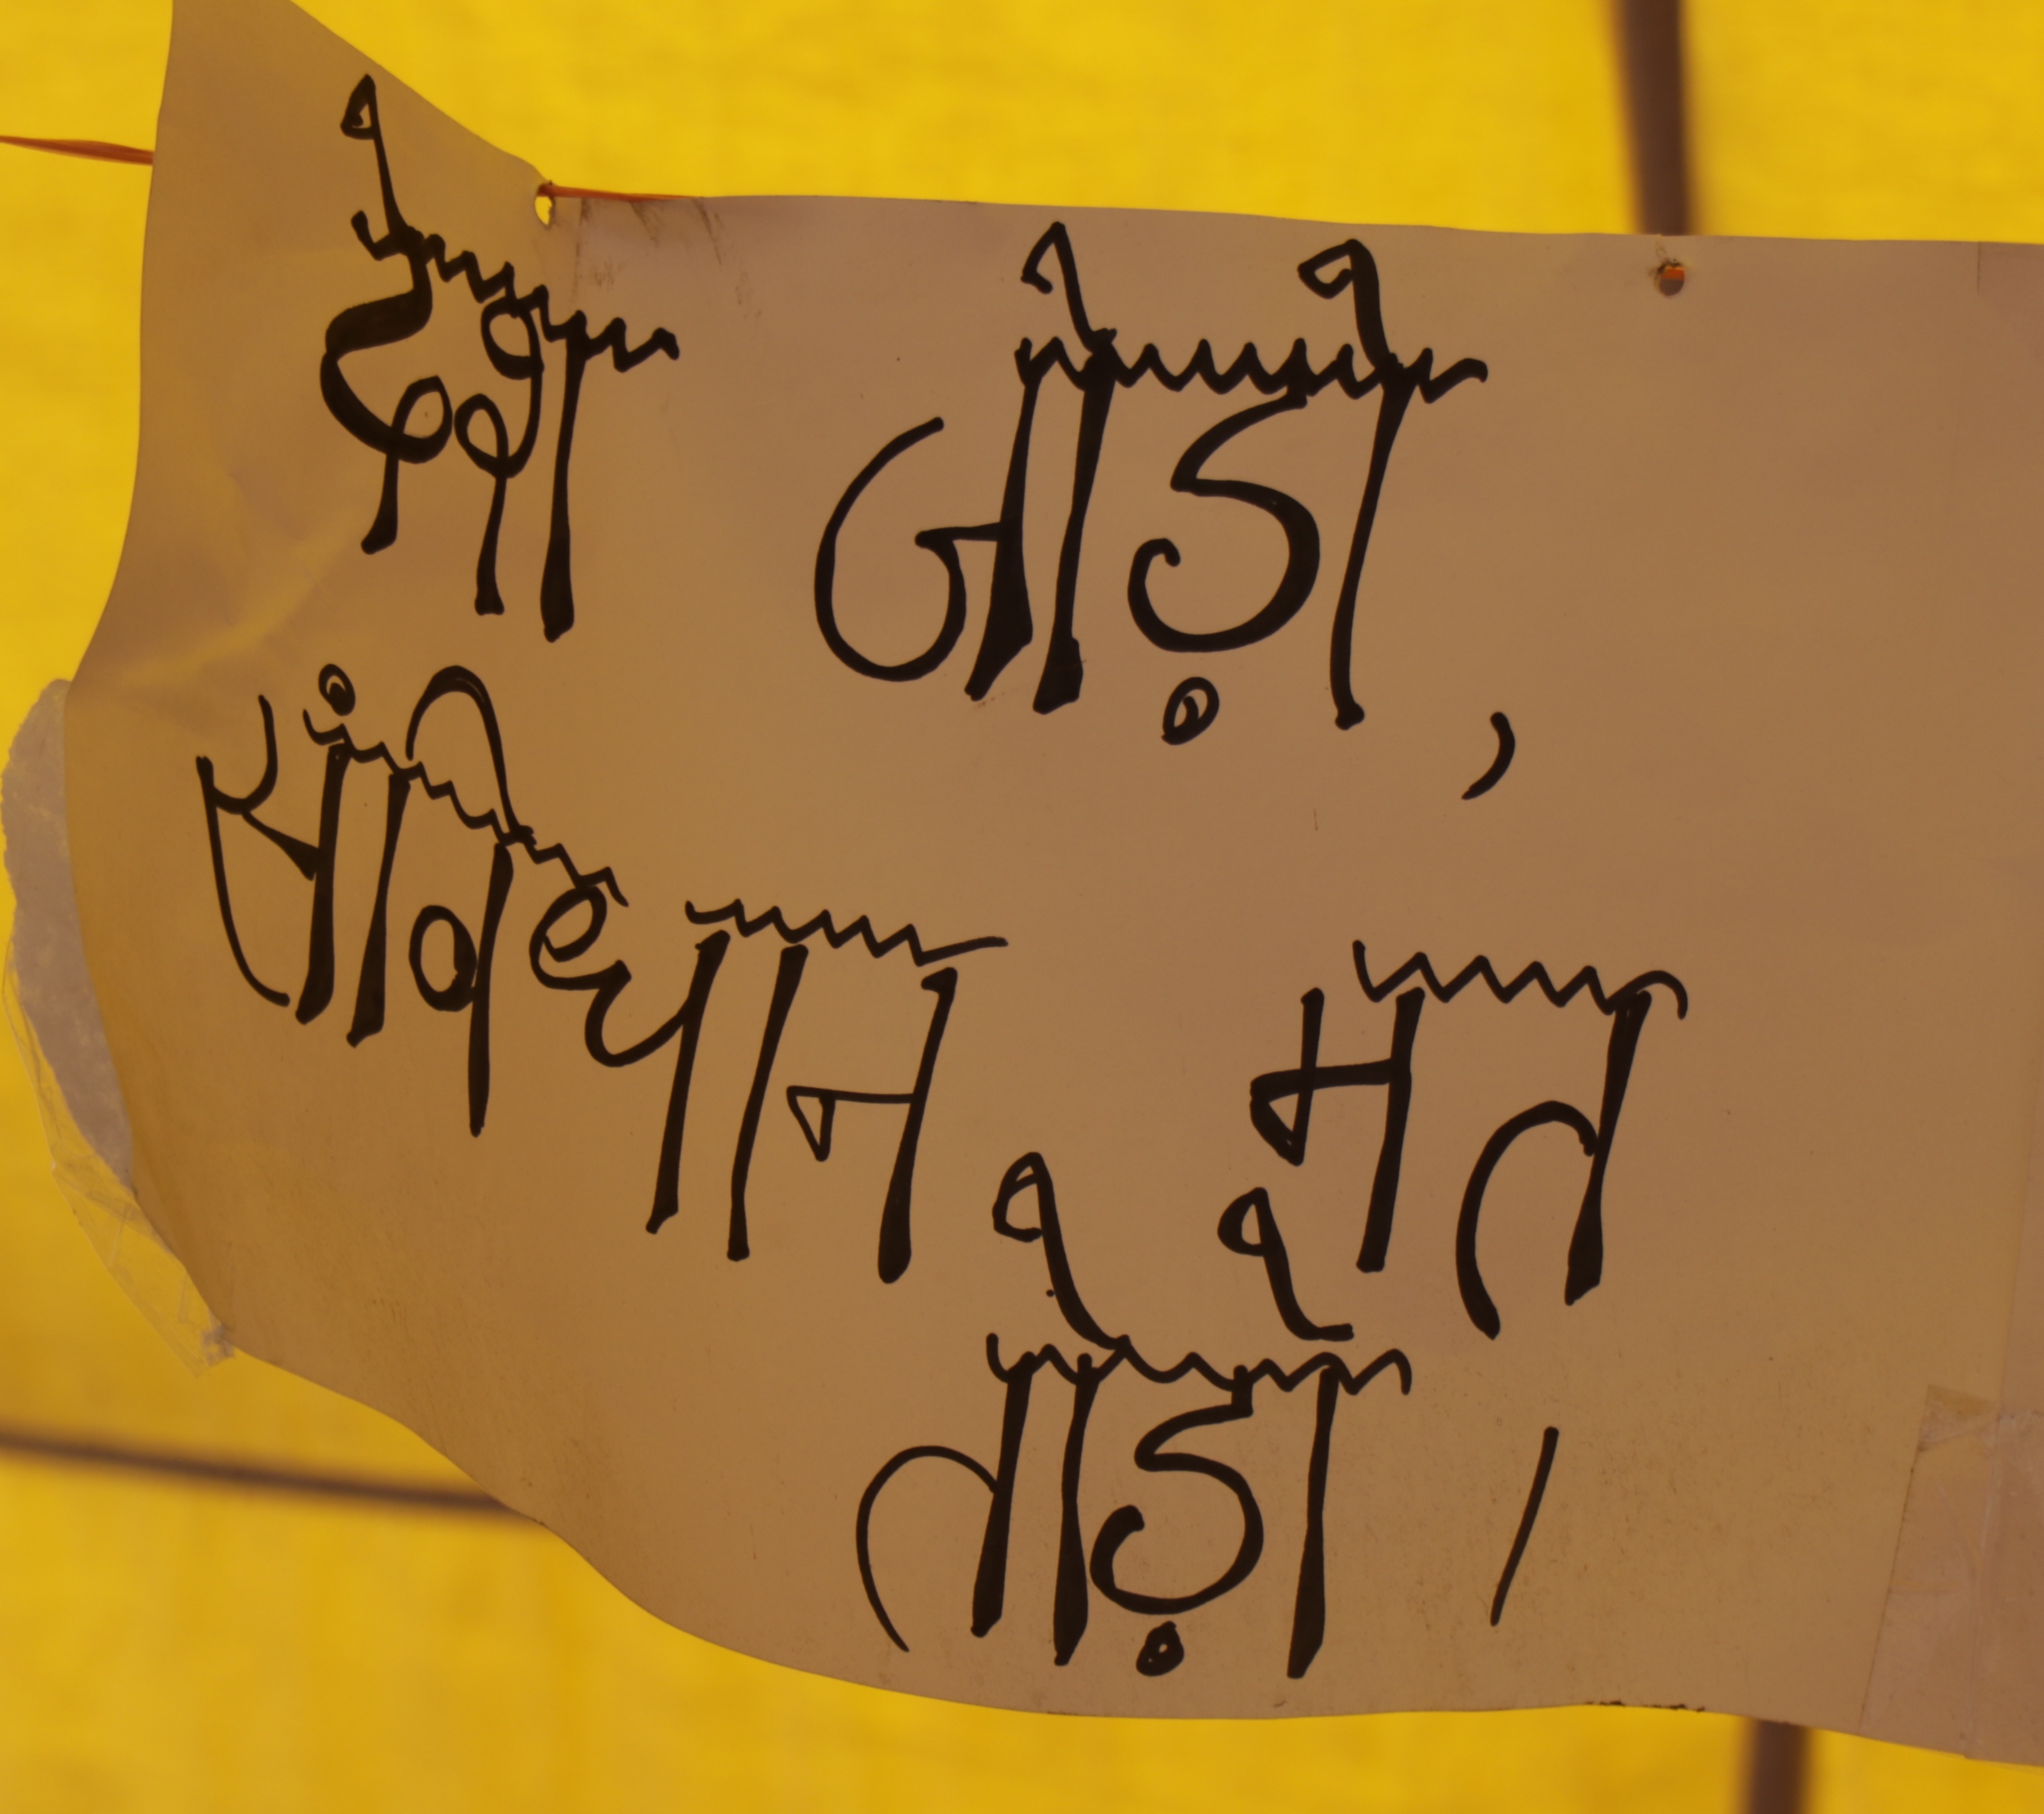 देश जोड़ो,
संविधान मत
तोड़ो ।